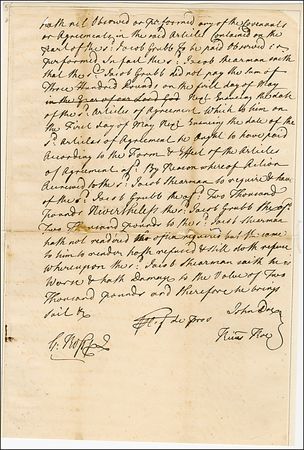 hath not Observed or performed any of the Covenants
or Agreements in the said Articles Contained on the
part of the sd. Jacob Grubb to be paid Observed or
performed In fact the sd. Jacob Shearman saith
that the sd. Jacob Grubb did not pay the sum of
Three Hundred Pounds on the first day of May
in the Year of our Lord God Next Ensuing the date
of the sd. Articles of Agreement which to him on
the First day of May Next Ensuing the date of the
sd. Articles of Agreement he ought to have paid
According to the Form & Effect of the Articles
of Agreement afsd. By Reason whereof Action
Accrued to the sd. Jacob Shearman to require & have
of the sd. Jacob Grubb the sd. Two Thousand
Pounds Nevertheless the sd. Jacob Grubb the sd.
Two Thousand pounds to the sd. Jacob Shearman
hath not rendred tho often required but the same
to him to render hath refused & still doth refuse
whereupon the sd. Jacob Shearman saith he is
Worse & hath Damage to the Value of Two
Thousand pounds and therefore he brings
suit &c
Pl. de pros John Doe
Richd. Roe